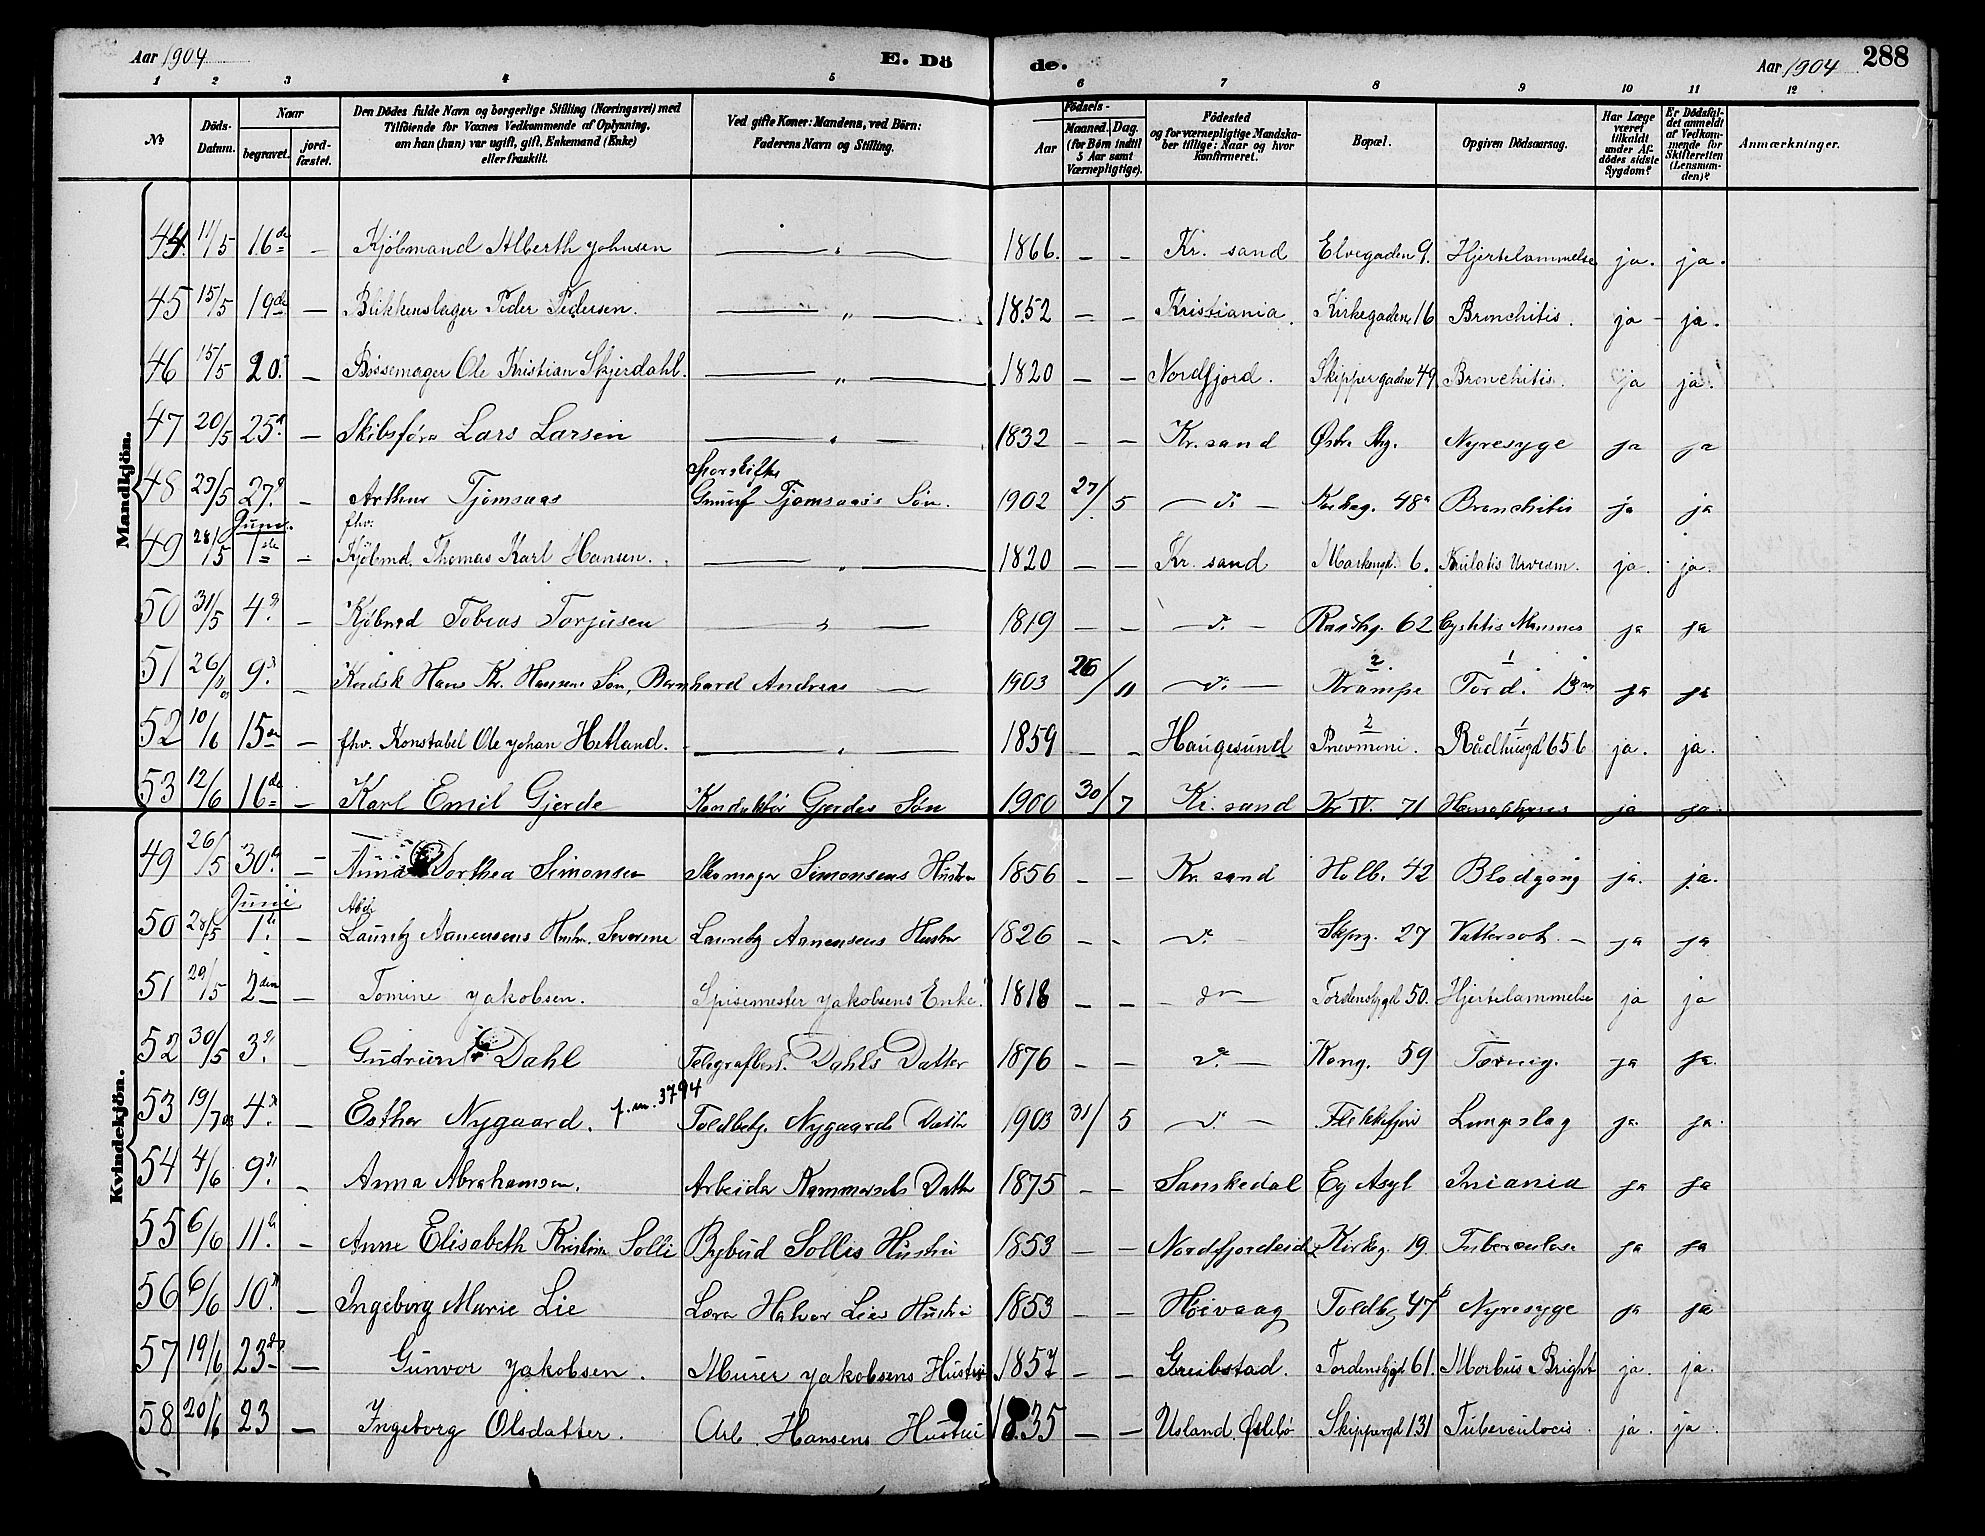 Aar 1904
E. Dö
de.
Aar 1904
288
1 2 3 4 5 6 7 8 9 10 11 12
№
Döds-Datum.
Naar
begravet.
jord-fæstet.
Den Dødes fulde Navn og borgerlige Stilling (Næringsvei) med
Tilföiende for Voxnes Vedkommende af Oplysning,
om han (hun) var ugift, gift, Enkemand (Enke)
eller fraskilt.
Ved gifte Koner: Mandens, ved Börn:
Faderens Navn og Stilling.
Födsels-
Aar
Maaned. Dag.
(for Börn indtil
5 Aar samt
Værnepligtige).
Födested
og for værnepligtige Mandska-
ber tillige: Naar og hvor
konfirmeret.
Bopæl.
Opgiven Dödsaarsag.
Har Læge
været
tilkaldt
under Af-
dödes sidste
Sygdom?
Er Dödsfal-
det anmeldt
af Vedkom-
mende for
Skifteretten
(Lensman-
den)?
Anmærkninger.
Mandkjön.
44. 11/5 16de — Kjöbmand Alberth Johnsen — " — 1866. — — Kr. sand Elvegaden 9. Hjertelammelse ja. ja.
45 15/5 19de — Blikkenslager Peder Pedersen. — " — 1852 — — Kristiania. Kirkegaden 16 Bronchitis. ja — ja.
46 15/5 20. — Bössemager Ole Kristian Skjerdahl. — " — 1820 — — Nordfjord. Skippergaden 49 Bronchitis. ja ja.
47 20/5 25d. — Skibsförer Lars Larsen — " — 1832 — — Kr. sand Østre Nyresyge ja ja
48 23/5 27d. — Arthur Tjomsaas Sporskifter Tjomsaas's Sön. 1902 27/5 — d. — Kirkeg. 48a Bronchitis ja ja
Juni. fhv.
49 28/5 1ste — Kjöbmd. Thomas Karl Hansen. — " — 1820 — — Kr. sand Markengd. 6. ja. ja.
50 31/5 4d. — Kjöbmd Tobias Torjusen — " — 1819 — — — d. — Raadhg. 62 ja ja
51 26/11 03 9d. — Hans Kr. Hansens Sön, Bernhard Andreas — 1903 26/11 — d. — 2. Krampe 1 Tord. ja ja
52 10/6 15de — fhv. Konstabel Ole Johan Hetland. — " — 1859 — — Haugesund 2 Pnevmoni. 1 Rådhusgd 65b ja. ja.
53 12/6 16de — Karl Emil Gjerde Konduktör Gjerdes Sön 1900 30/7 Kr. sand Kr. IV. 71 ja ja.
Kvindekjön.
49 26/5 30d. — Anna Dorthea Simonsen Skomager Simonsens Hustru 1856 — — Kr. sand Holb. 42 Blodgang ja. ja.
Juni
50 28/5 1ste. — Lauritz Aanensens Hustru Severine Lauritz Aanensens Hustru 1826 — — d. — Skprg. 27 Vattersot. — ja ja
51 29/5 2den — Tomine Jakobsen. Spisemester Jakobsens Enke. 1818 — — — do — Tordenskjgd 50. Hjertelammelse ja ja
52 30/5 3d. — Gudrun Dahl Telegrafbest. Dahls Datter 1876 — — d. — Kong. 59 Tæring. ja ja.
53 19/7 03 4d. — Esther Nygaard. f. m. 3794 Toldbetj. Nygaards Datter 1903 31/5 d. — Flekkefjord Lungslag ja. ja.
54 4/6 9d. — Anna Abrahamsen. Arbeider Datter 1875 — — Eg Asyl ja ja
55 6/6 11d. — Anne Elisabeth Kristine Solli Bybud Sollis Hustru 1853 — — Nordfjordeid Kirkeg. 19 Tuberculose ja ja
56 6/6 10d. — Ingeborg Marie Lie Halvor Lies Hustru 1853 — — Höivaag Toldbg 47b Nyresyge ja ja
57 19/6 23de — Gunvor Jakobsen. Murer Jakobsens Hustru 1857 — — Greibstad. Tordenskjgd 61. Morbus Bright ja. ja.
58 20/6 23 — Ingeborg Olsdatter. Arb. Hansens Hustru 1835 — — Usland, Øslebö Skippergd 131 Tuberculocis. ja. ja.